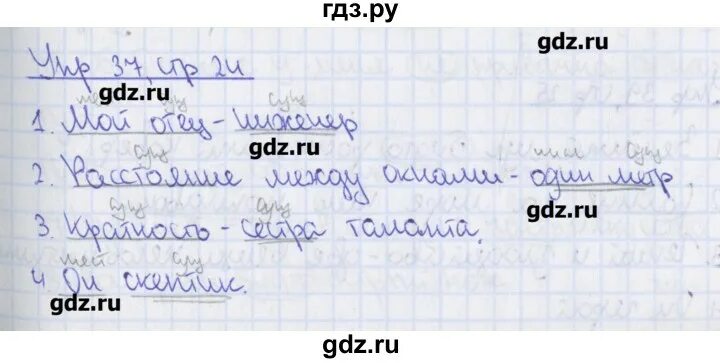 гдз.ру
Упр 37, стр 24
gdz.ru
gdz.ru
мест сущ сущ
1. Мой отец - инженер
gdz.ru
сущ числ сущ
2. Расстояние между окнами - один метр
gdz.ru
сущ сущ
3. Краткость - сестра таланта.
мест сущ
4. Он скептик.
gdz.ru